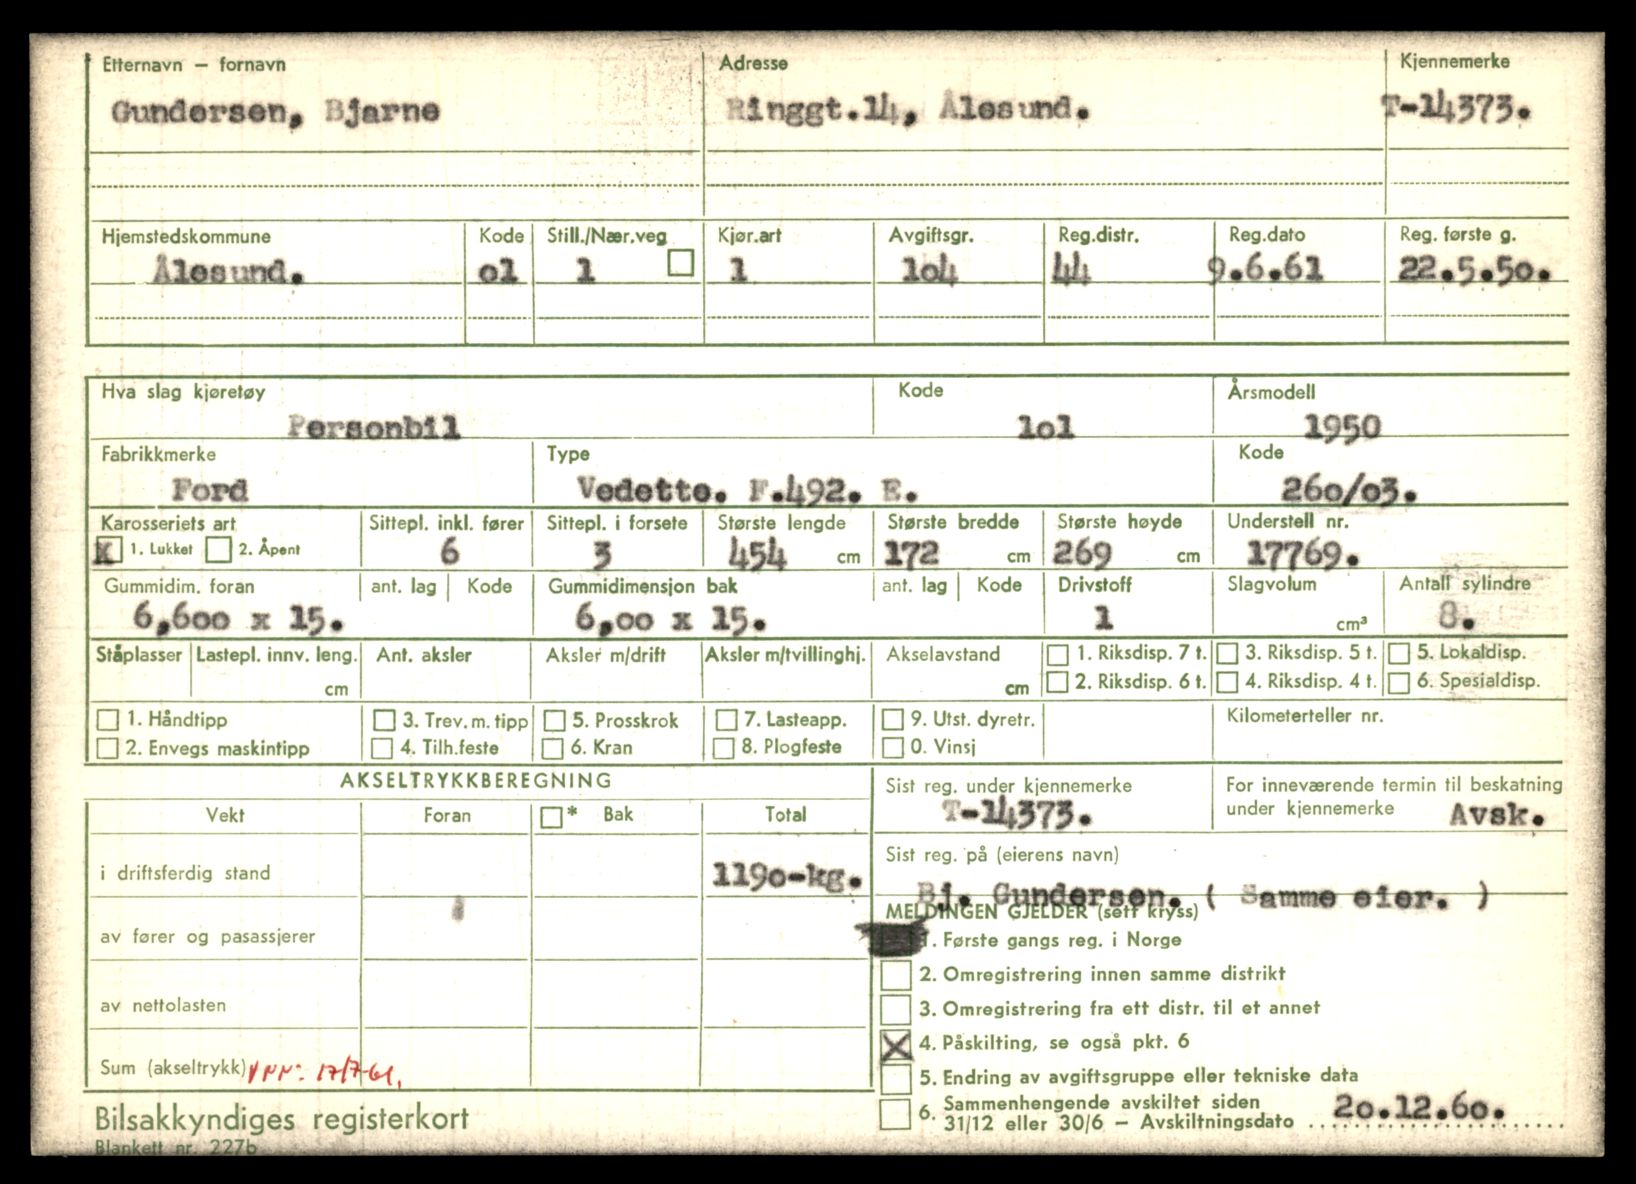 Etternavn – fornavn Adresse Kjennemerke
Gundersen, Bjarne Ringgt.14, Ålesund. T-14373.
Hjemstedskommune Kode Still./Nær.veg Kjør.art Avgiftsgr. Reg.distr. Reg.dato Reg. første g.
Ålesund. ol 1 1 1o4 44 9.6.61 22.5.5o.
Hva slag kjøretøy Kode Årsmodell
Personbil 1o1 1950
Fabrikkmerke Type Kode
Ford Vedette. F.492. E. 26o/o3.
Karosseriets art Sittepl. inkl. fører Sittepl. i forsete Største lengde Største bredde Største høyde Understell nr.
X 1. Lukket 2. Åpent 6 3 454 cm 172 cm 269 cm 17769.
Gummidim. foran ant. lag Kode Gummidimensjon bak ant. lag Kode Drivstoff Slagvolum Antall sylindre
6,6oo x 15. 6,oo x 15. 1 cm³ 8.
Ståplasser Lastepl. innv. leng. Ant. aksler Aksler m/drift Aksler m/tvillinghj. Akselavstand 1. Riksdisp. 7 t. 3. Riksdisp. 5 t. 5. Lokaldisp.
cm cm 2. Riksdisp. 6 t. 4. Riksdisp. 4 t. 6. Spesialdisp.
1. Håndtipp 3. Trev. m. tipp 5. Prosskrok 7. Lasteapp. 9. Utst. dyretr. Kilometerteller nr.
2. Envegs maskintipp 4. Tilh.feste 6. Kran 8. Plogfeste 0. Vinsj
AKSELTRYKKBEREGNING Sist reg. under kjennemerke For inneværende termin til beskatning
Vekt Foran * Bak Total T-14373. under kjennemerke Avsk.
Sist reg. på (eierens navn)
i driftsferdig stand 119o-kg.
Bj. Gundersen. ( Samme eier. )
MELDINGEN GJELDER (sett kryss)
av fører og pasassjerer 1. Første gangs reg. i Norge
2. Omregistrering innen samme distrikt
av nettolasten 3. Omregistrering fra ett distr. til et annet
X 4. Påskilting, se også pkt. 6
Sum (akseltrykk) 17/7-61.
5. Endring av avgiftsgruppe eller tekniske data
Bilsakkyndiges registerkort 6. Sammenhengende avskiltet siden
31/12 eller 30/6 – Avskiltningsdato 2o.12.6o.
Blankett nr. 227b